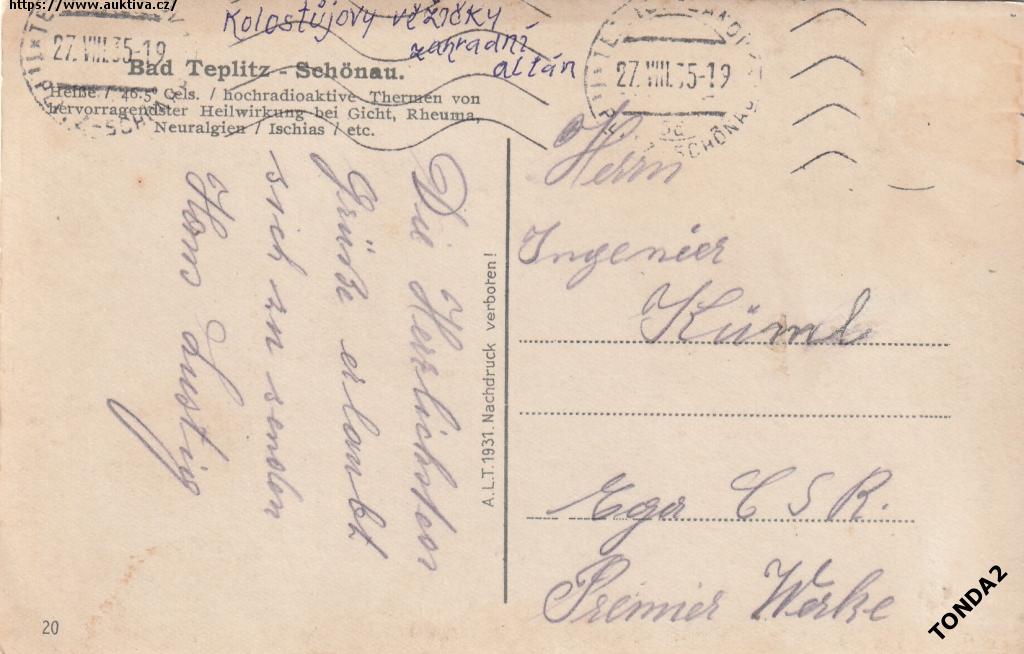 https://www.auktiva.cz/
Kolostůjovy věžičky
zahradní
altán
27.VIII.35-19
27.VIII.35-19
Bad Teplitz - Schönau.
Heiße / 46.5° Cels. / hochradioaktive Thermen von
hervorragendster Heilwirkung bei Gicht, Rheuma,
Neuralgien / Ischias / etc.
Die Herzlichsten
Grüße erlaubt
sich zu senden
Hans Lustig
A.L.T. 1931. Nachdruck verboten!
Herrn
Ingenier
Küml
Eger C S R.
Premier Werke
20
TONDA2